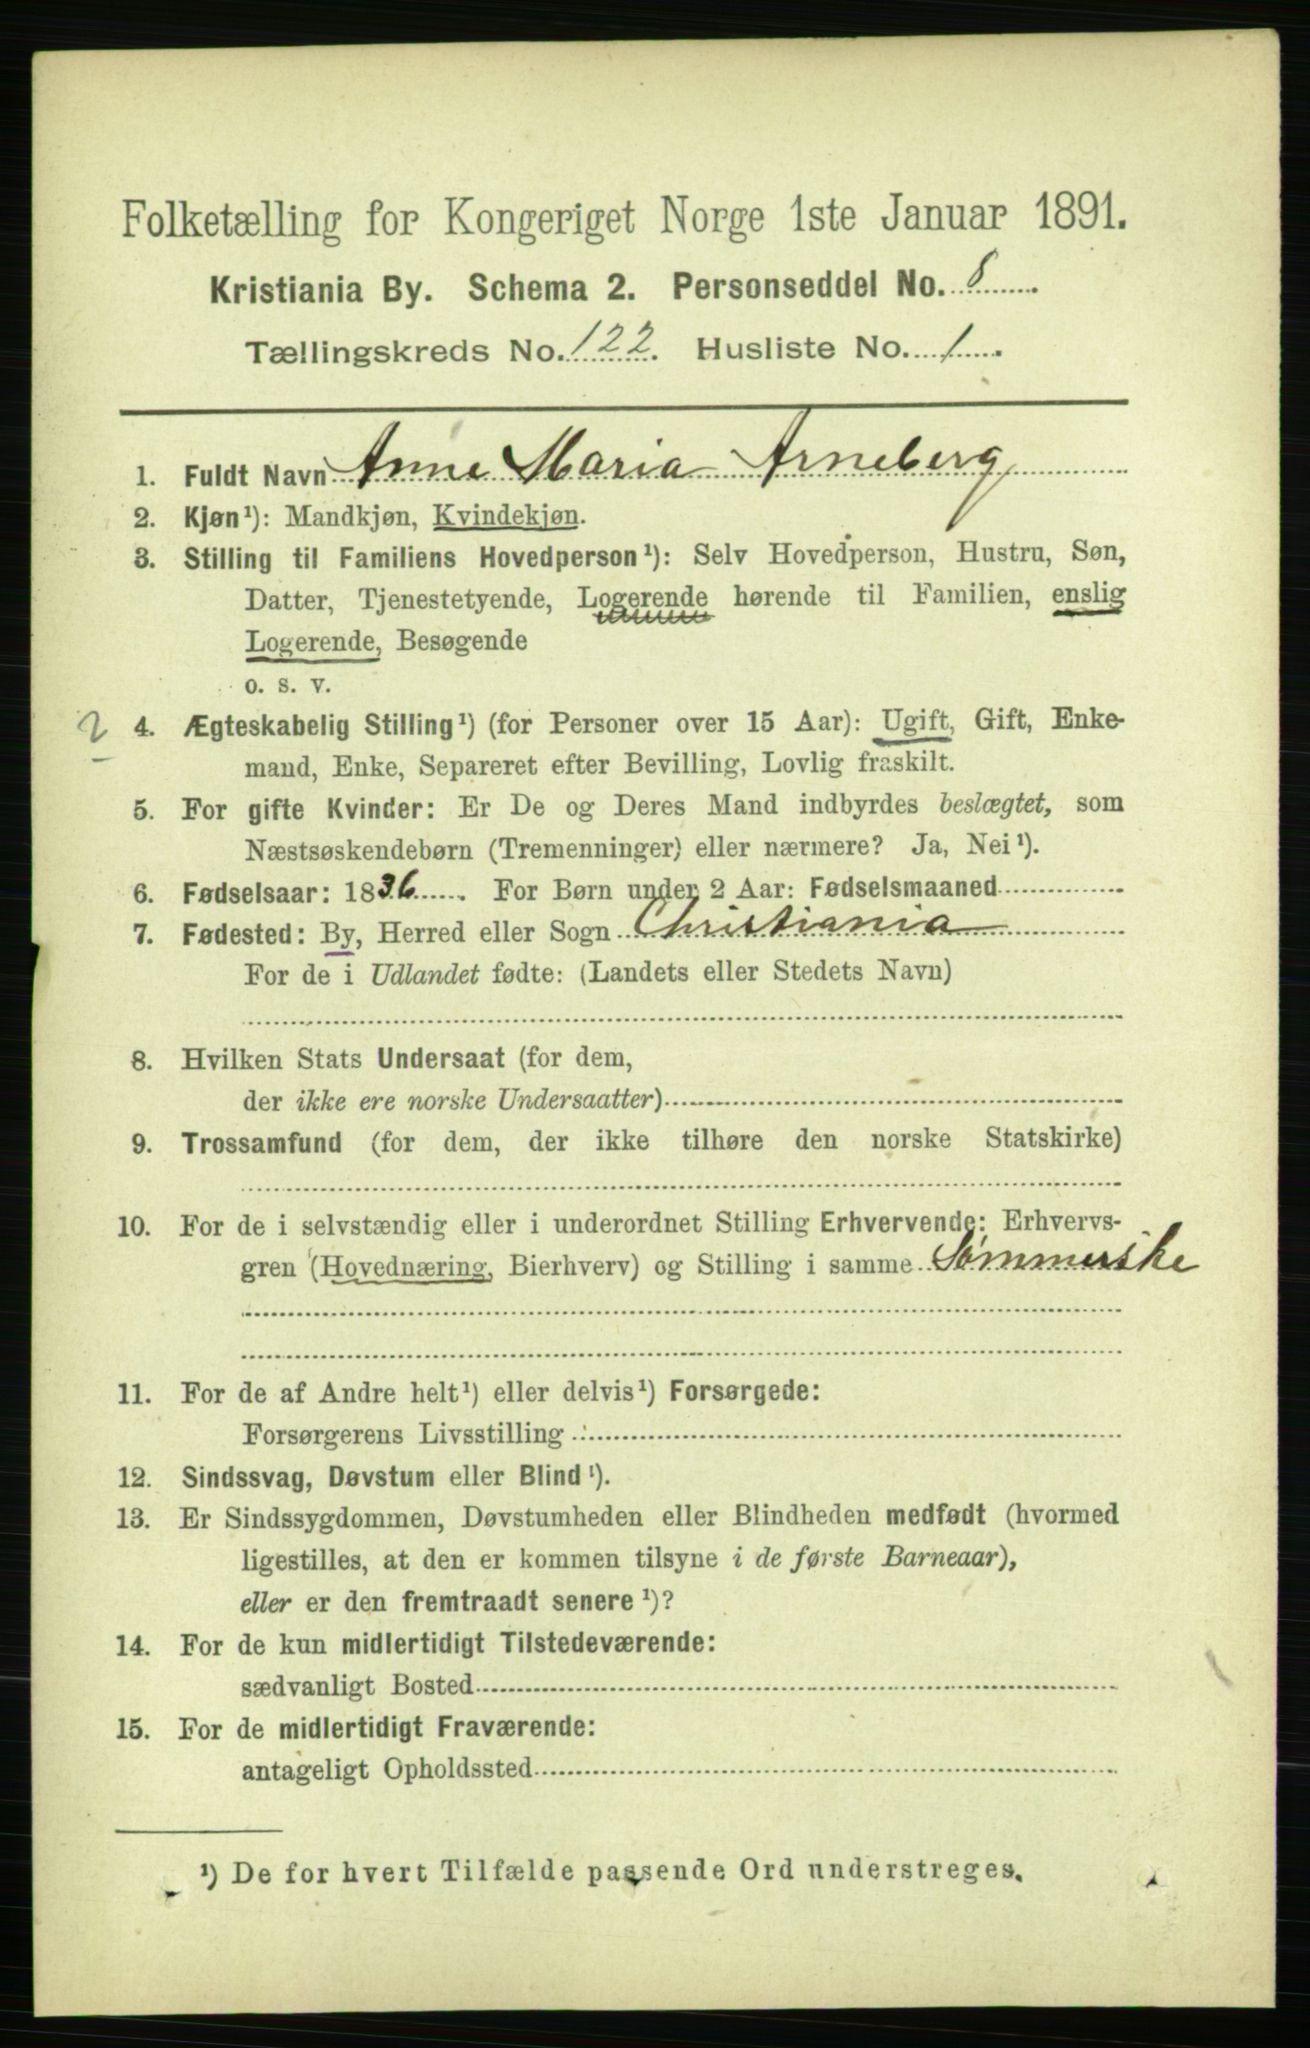 Folketælling for Kongeriget Norge 1ste Januar 1891.
Kristiania By. Schema 2. Personseddel No. 8.
Tællingskreds No. 122. Husliste No. 1.
1. Fuldt Navn Anne Maria Arneberg
2. Kjøn¹): Mandkjøn, Kvindekjøn.
3. Stilling til Familiens Hovedperson¹): Selv Hovedperson, Hustru, Søn,
Datter, Tjenestetyende, Logerende hørende til Familien, enslig
Logerende, Besøgende
o. s. v.
2 4. Ægteskabelig Stilling¹) (for Personer over 15 Aar): Ugift, Gift, Enke-
mand, Enke, Separeret efter Bevilling, Lovlig fraskilt.
5. For gifte Kvinder: Er De og Deres Mand indbyrdes beslægtet, som
Næstsøskendebørn (Tremenninger) eller nærmere? Ja, Nei¹).
6. Fødselsaar: 1836. For Børn under 2 Aar: Fødselsmaaned
7. Fødested: By, Herred eller Sogn Christiania
For de i Udlandet fødte: (Landets eller Stedets Navn)
8. Hvilken Stats Undersaat (for dem,
der ikke ere norske Undersaatter)
9. Trossamfund (for dem, der ikke tilhøre den norske Statskirke)
10. For de i selvstændig eller i underordnet Stilling Erhvervende: Erhvervs-
gren (Hovednæring, Bierhverv) og Stilling i samme Sømmerske
11. For de af Andre helt¹) eller delvis¹) Forsørgede:
Forsørgerens Livsstilling
12. Sindssvag, Døvstum eller Blind¹).
13. Er Sindssygdommen, Døvstumheden eller Blindheden medfødt (hvormed
ligestilles, at den er kommen tilsyne i de første Barneaar),
eller er den fremtraadt senere¹)?
14. For de kun midlertidigt Tilstedeværende:
sædvanligt Bosted
15. For de midlertidigt Fraværende:
antageligt Opholdssted
¹) De for hvert Tilfælde passende Ord understreges.